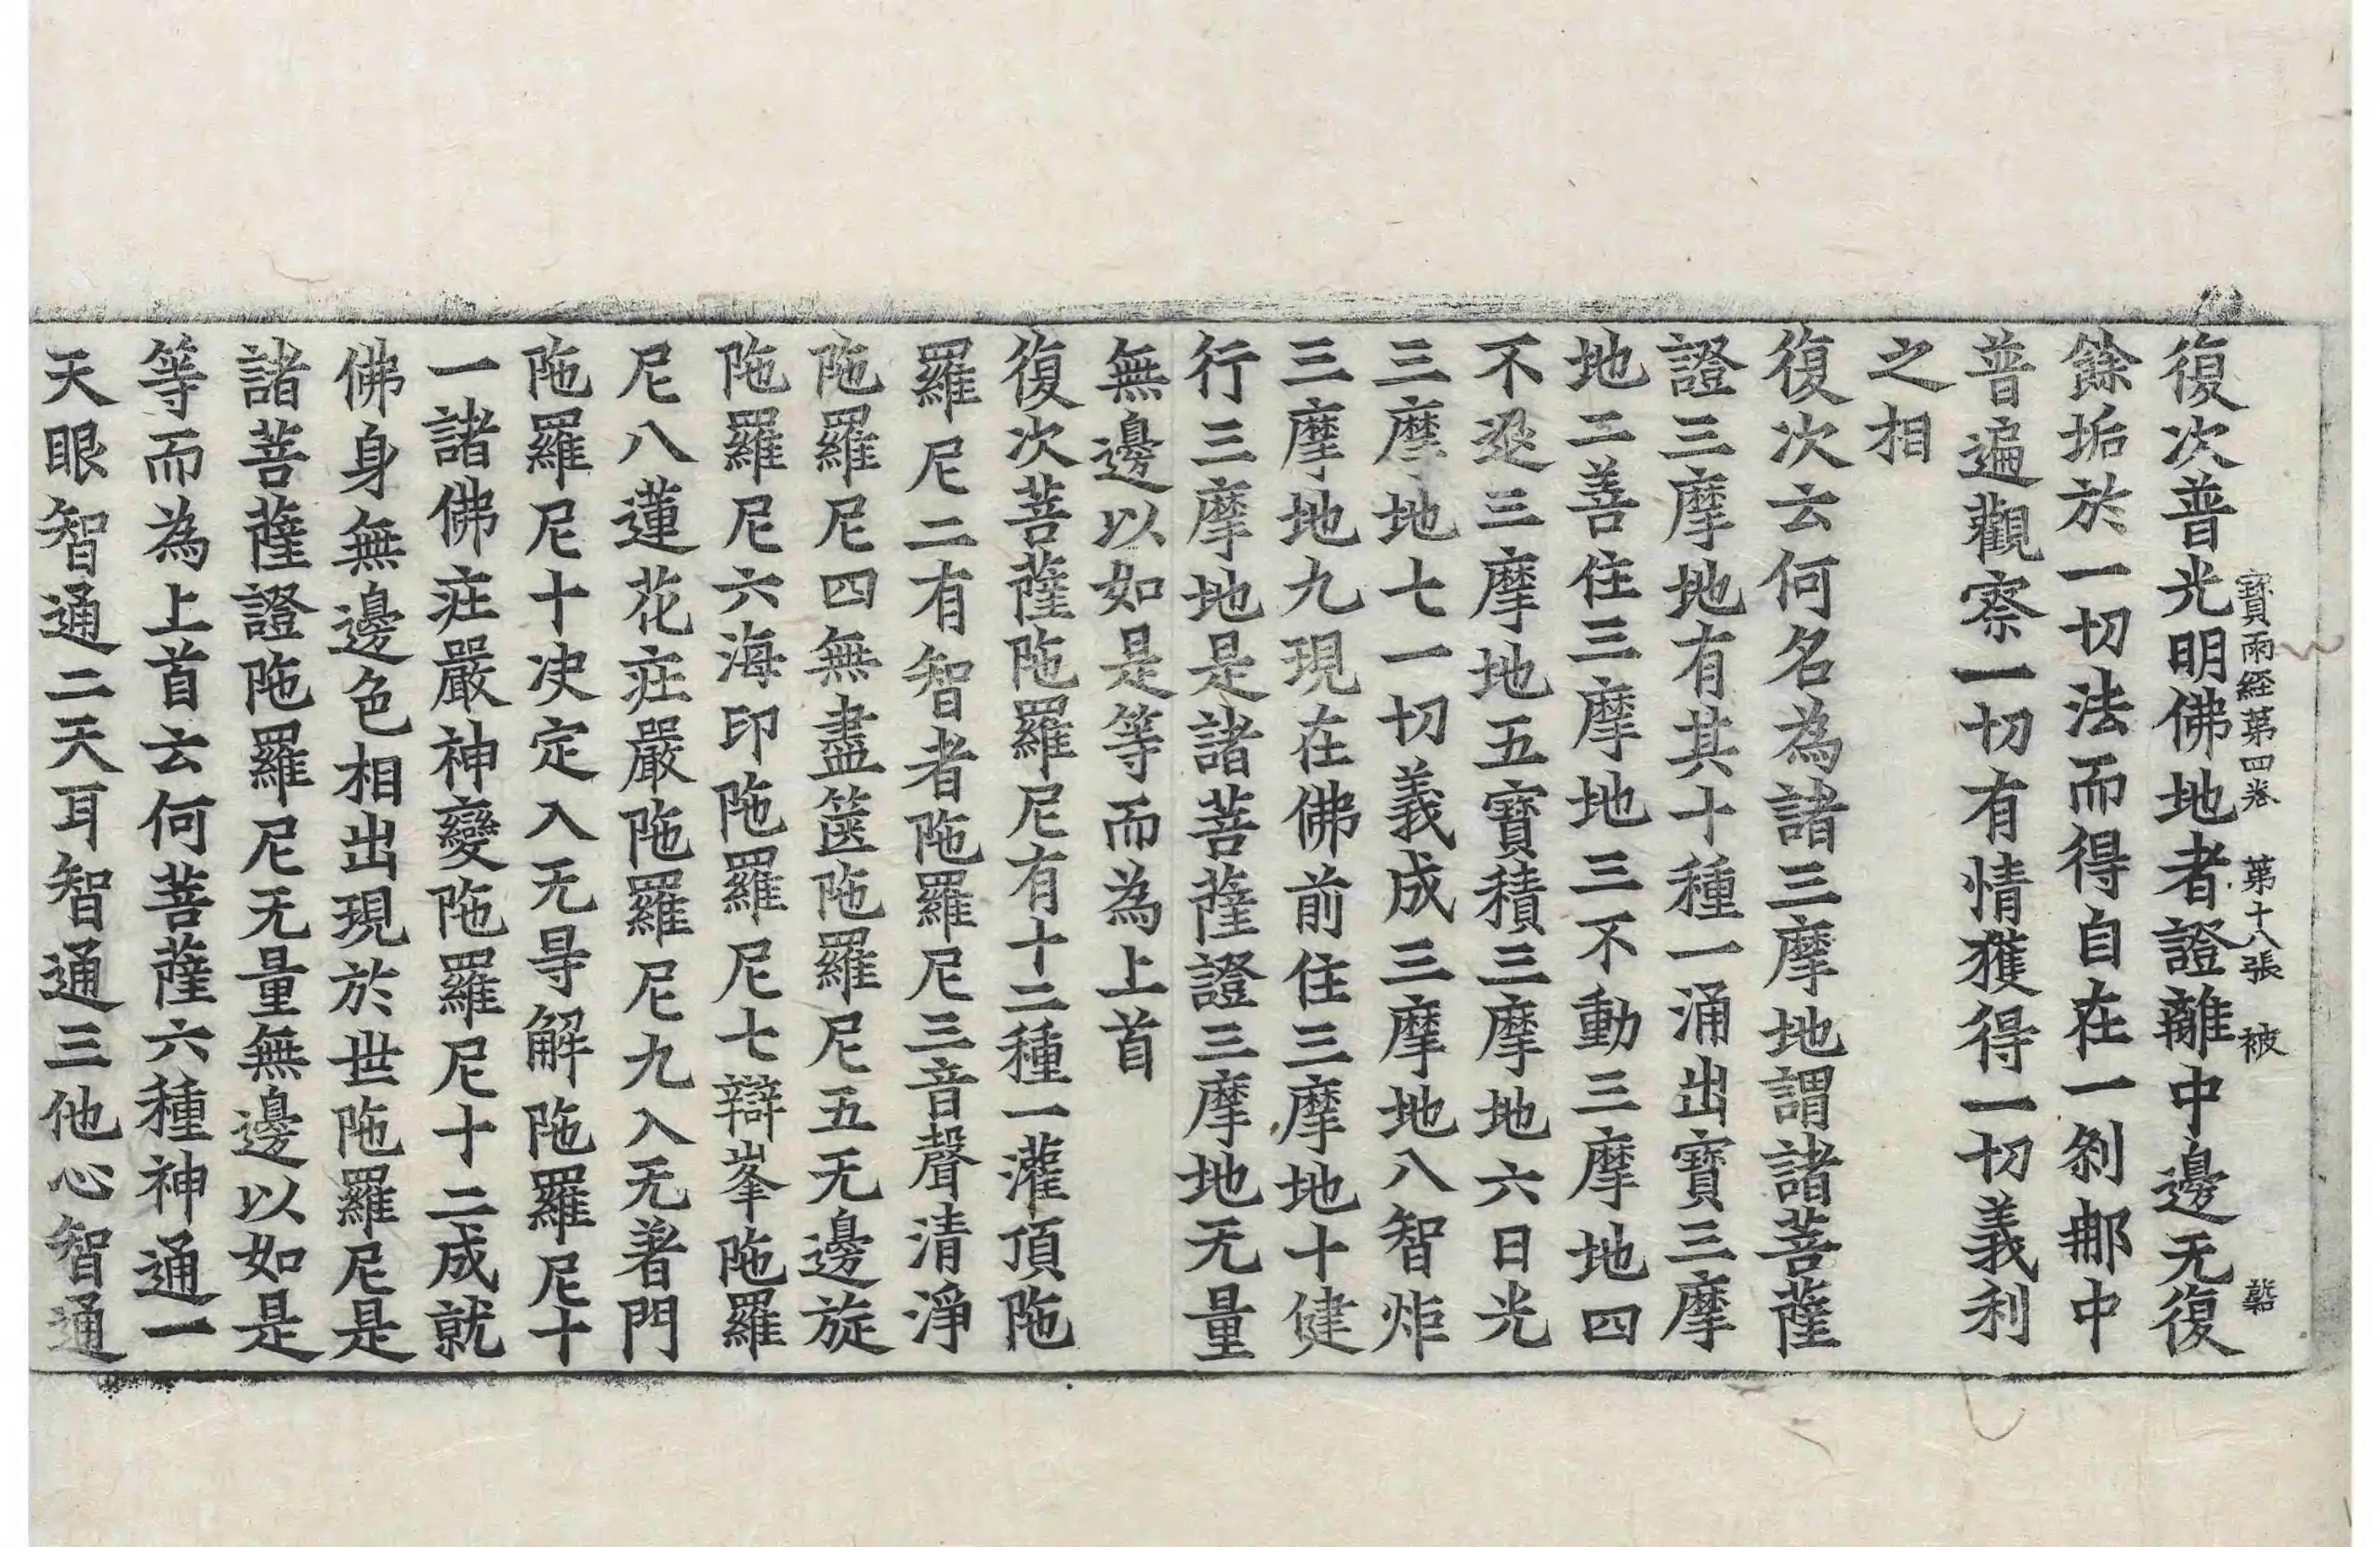 復次普光明佛地者證離中邊无復
寶雨経苐四卷　苐十八張　被
餘垢於一切法而得自在一刹𨚗中
普遍觀察一切有情獲得一切義利
之相
復次云何名為諸三摩地謂諸菩薩
證三摩地有其十種一涌出寶三摩
地二善住三摩地三不動三摩地四
不退三摩地五寶積三摩地六日光
三摩地七一切義成三摩地八智炬
三摩地九現在佛前住三摩地十健
行三摩地是諸菩薩證三摩地无量
無邊以如是等而為上首
復次菩薩陁羅尼有十二種一灌頂陁
羅尼二有智者陁羅尼三音聲清淨
陁羅尼四無盡篋陁羅尼五无邊旋
陁羅尼六海印陁羅尼七辯峯陁羅
尼八蓮花疘嚴陁羅尼九入无著門
陁羅尼十决定入无㝵解陁羅尼十
一諸佛疘嚴神變陁羅尼十二成就
佛身無邊色相出現於世陁羅尼是
諸菩薩證陁羅尼无量無邊以如是
等而為上首云何菩薩六種神通一
天眼智通二天耳智通三他心智通